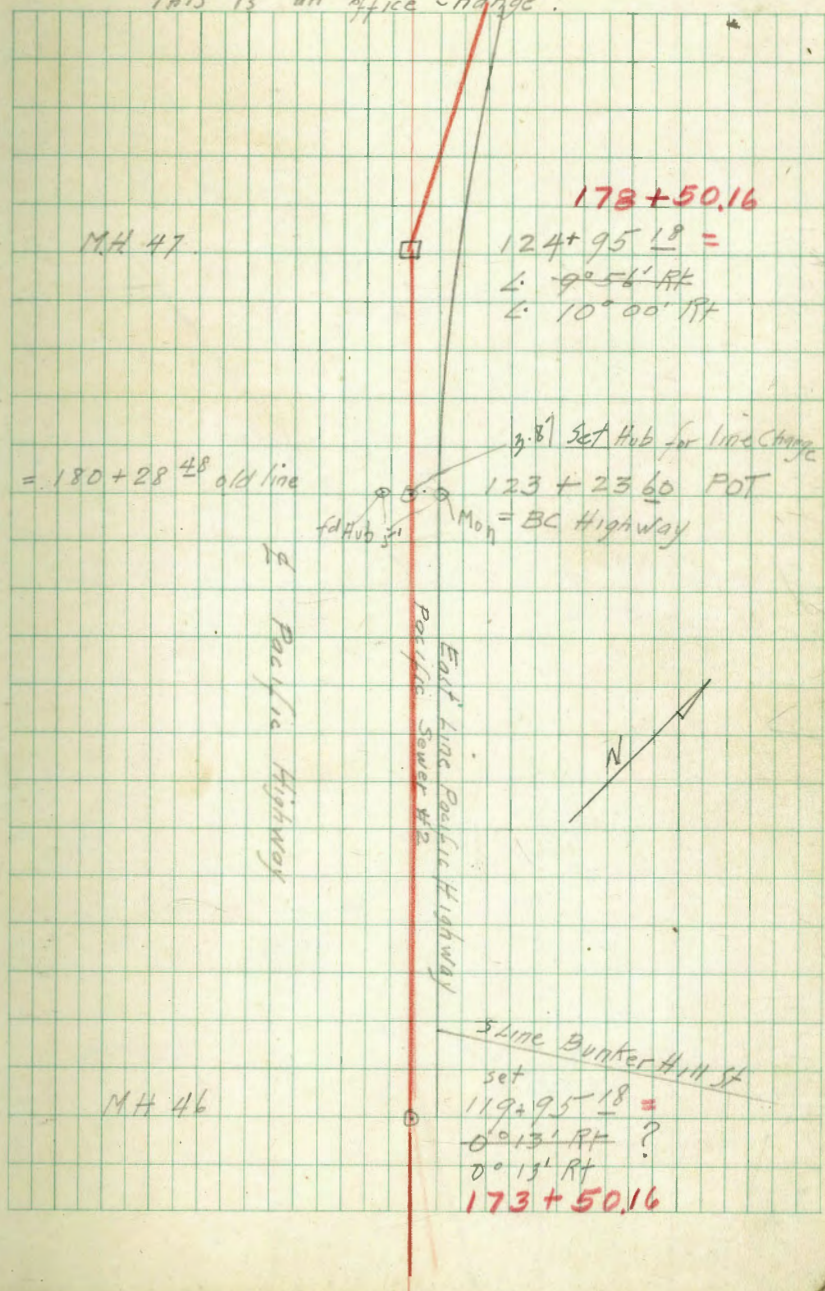 This is an office change.
178+50.16
M.H. 47
124+95 18 =
∠. 9°56' Rt
∠. 10°00' Rt
Set Hub for line Change
= 180+28 48 old line
123+23 60 POT
fd Hub
Mon = BC Highway
Pacific Highway
Pacific Sewer #2
East Line Pacific Highway
N
S Line Bunker Hill St
set
MH 46
119+95 18 =
0°13' Rt ?
0°13' Rt
173+50.16